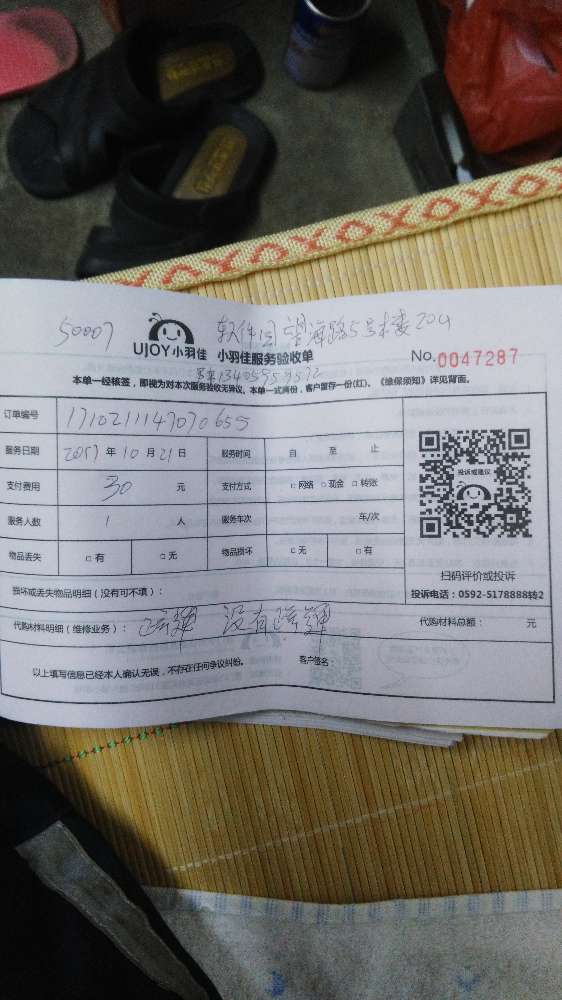 50007 软件园望海路5号楼204
UJOY小羽佳 小羽佳服务验收单 No.0047287
本单一经核签，即视为对本次服务验收无异议。本单一式两份，客户留存一份(红)。《维保须知》详见背面。
订单编号 1710211147070655
服务日期 2017年10月21日 服务时间 自 至 止
支付费用 30 元 支付方式 □网络 □现金 □转账
服务人数 1 人 服务车次 车/次
物品丢失 □有 □无 物品损坏 □无 □有
投诉或建议
扫码评价或投诉
投诉电话：0592-5178888转2
损坏或丢失物品明细（没有可不填）：
代购材料明细（维修业务）： 没有 代购材料总额： 元
以上填写信息已经本人确认无误，不存在任何争议纠纷。 客户签名：